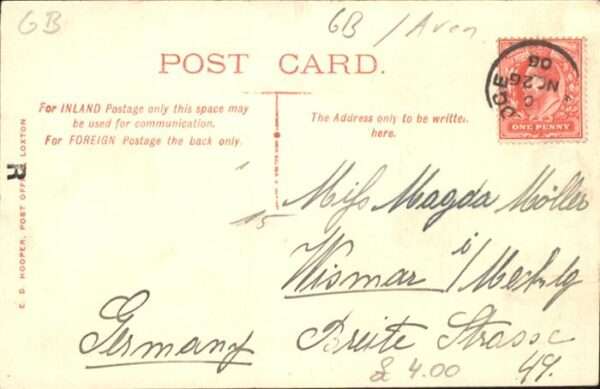 GB
GB / Aven
POST CARD.
For INLAND Postage only this space may
be used for communication.
For FOREIGN Postage the back only.
The Address only to be written
here.
ONE PENNY
C
NO 26
06
R
E. D. HOOPER, POST OFFICE, LOXTON
15
Miss Magda Möller
Wismar i/Mecklg
Breite Strasse
49.
Germany
4.00